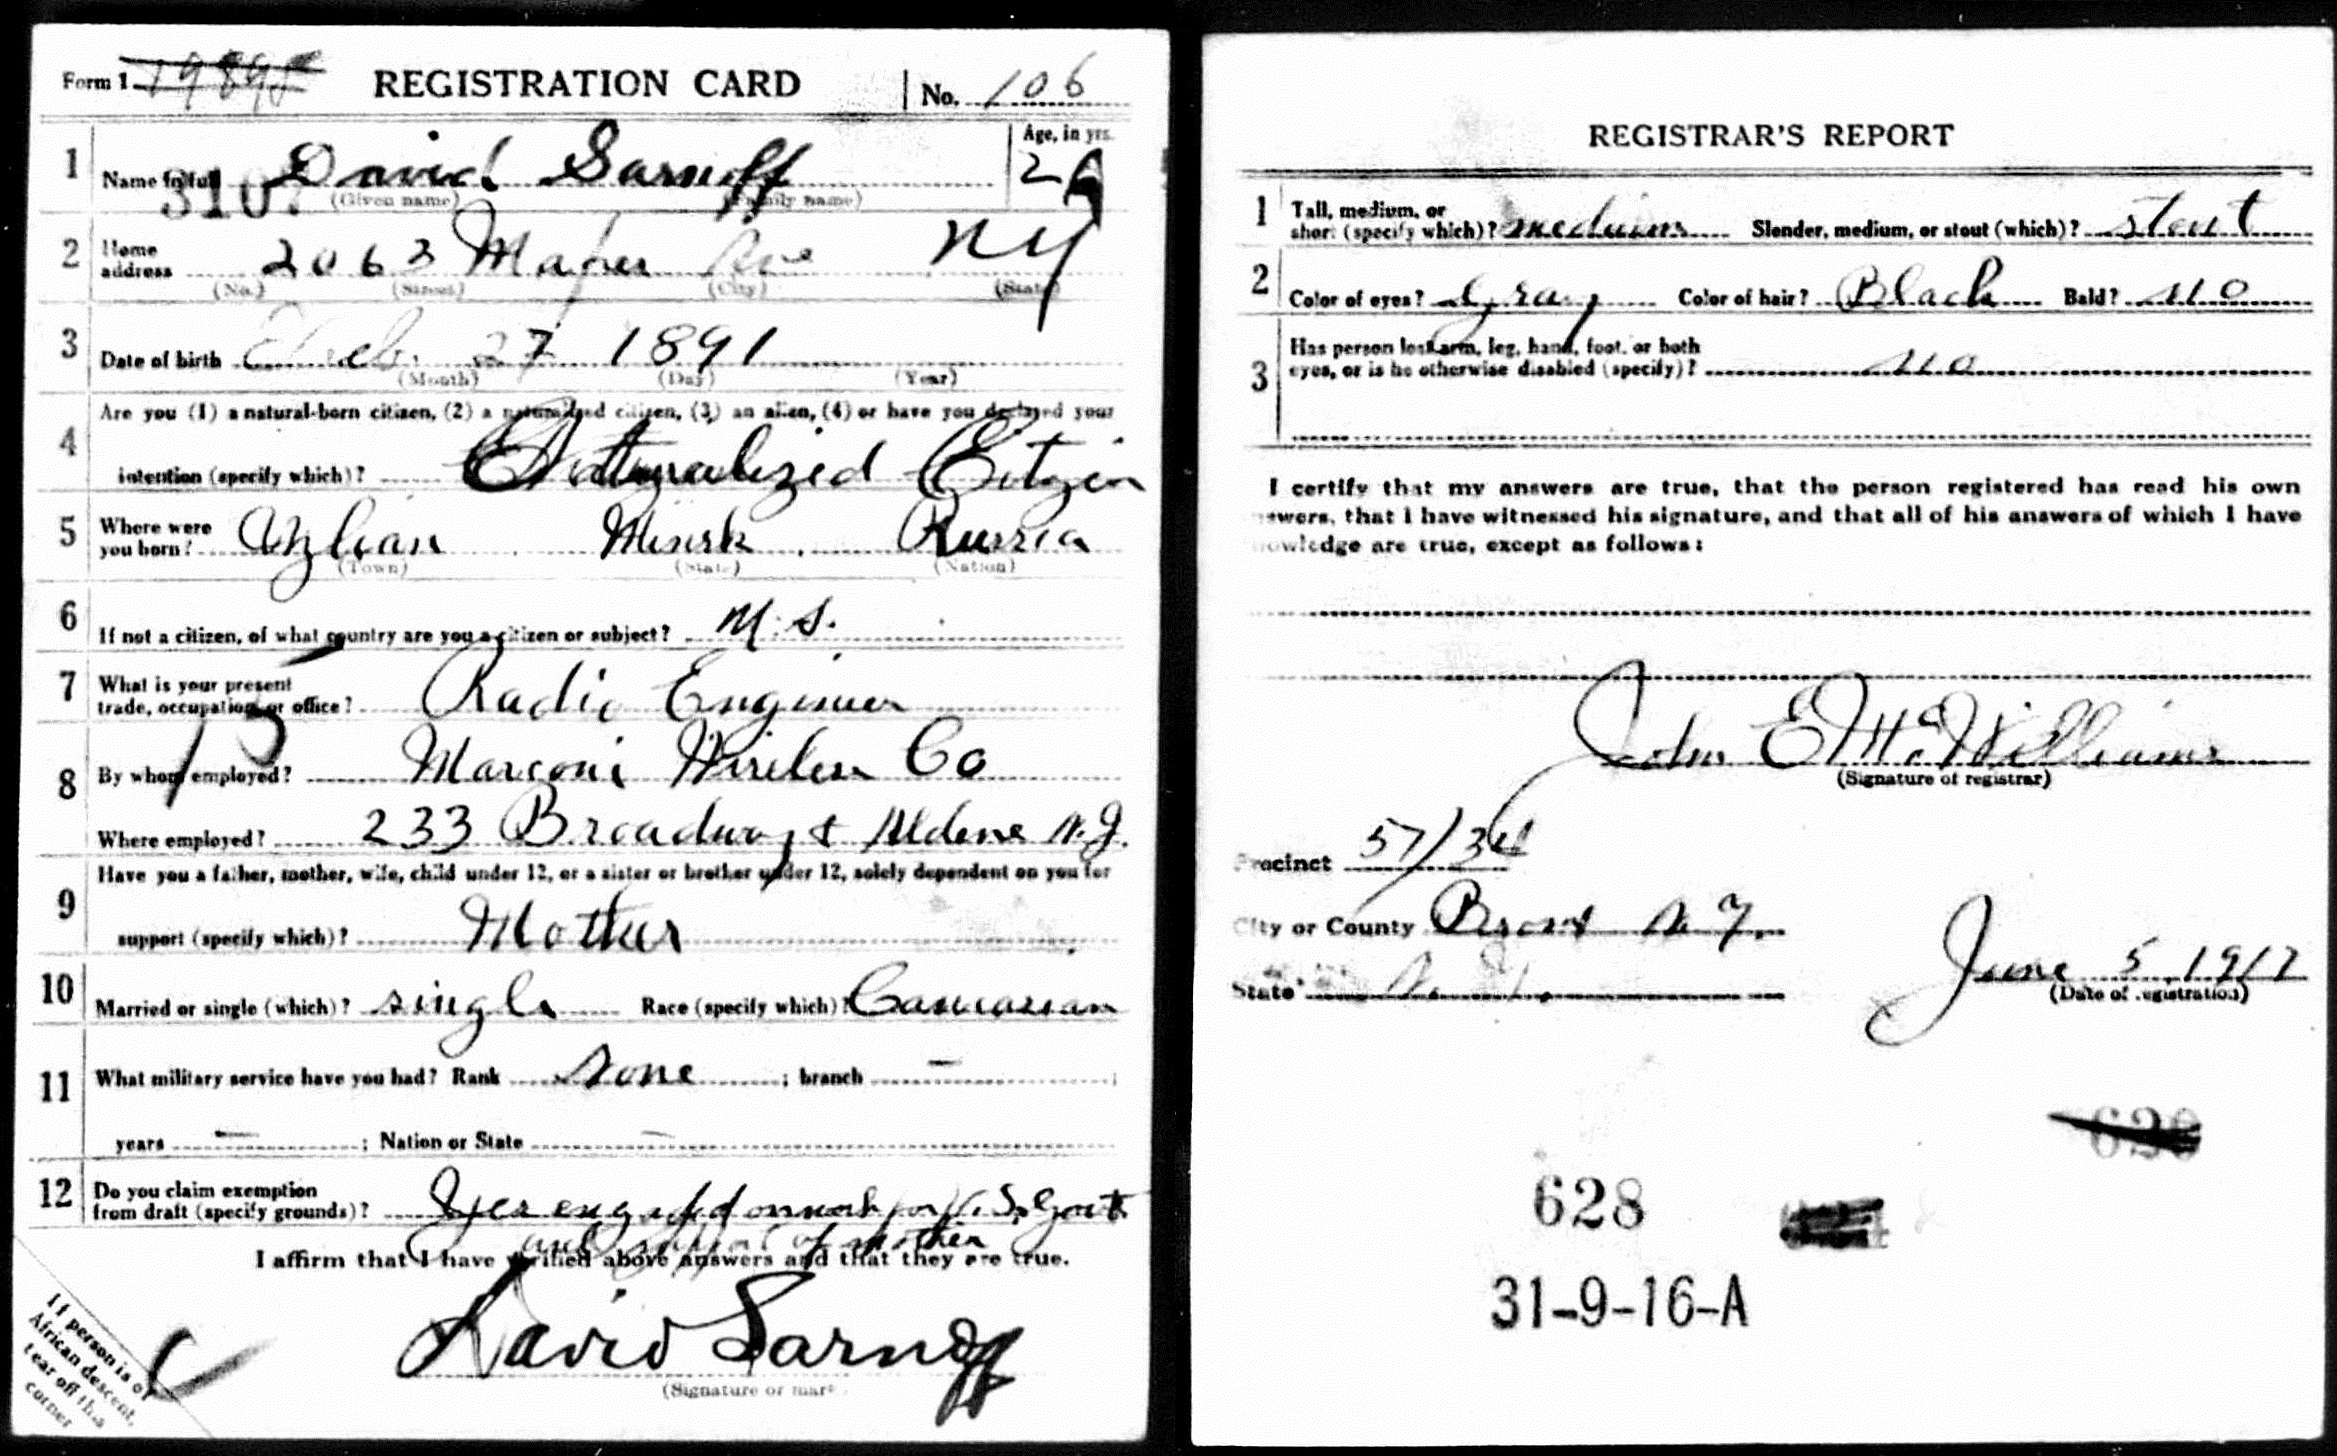 Form 1 19895 REGISTRATION CARD No. 106
1 Name in full David Sarnoff Age, in yrs. 26
310 (Given name) (Family name)
2 Home address 2063 Ave NY
(No.) (Street) (City) (State)
3 Date of birth Feb. 27 1891
(Month) (Day) (Year)
Are you (1) a natural-born citizen, (2) a naturalized citizen, (3) an alien, (4) or have you declared your
4 intention (specify which)? Naturalized Citizen
5 Where were you born? Uzlian Minsk Russia
(Town) (State) (Nation)
6 If not a citizen, of what country are you a citizen or subject? U.S.
7 What is your present trade, occupation, or office? Radio Engineer
15
8 By whom employed? Marconi Wireless Co
Where employed? 233 Broadway & Aldene N.J.
Have you a father, mother, wife, child under 12, or a sister or brother under 12, solely dependent on you for
9 support (specify which)? Mother
10 Married or single (which)? single Race (specify which)? Caucasian
11 What military service have you had? Rank None ; branch —
years — ; Nation or State —
12 Do you claim exemption from draft (specify grounds)? Yes engaged on work for U.S. Govt
and support of mother
I affirm that I have verified above answers and that they are true.
David Sarnoff
(Signature or mark)
If person is of
African descent,
tear off this
corner
REGISTRAR'S REPORT
1 Tall, medium, or short (specify which)? medium Slender, medium, or stout (which)? stout
2 Color of eyes? Gray Color of hair? Black Bald? no
3 Has person lost arm, leg, hand, foot, or both
eyes, or is he otherwise disabled (specify)? no
I certify that my answers are true, that the person registered has read his own
swers, that I have witnessed his signature, and that all of his answers of which I have
nowledge are true, except as follows:
John E McWilliams
(Signature of registrar)
Precinct 57/34
City or County Bronx N.Y.
State N.Y. June 5 1917
(Date of registration)
628
31-9-16-A